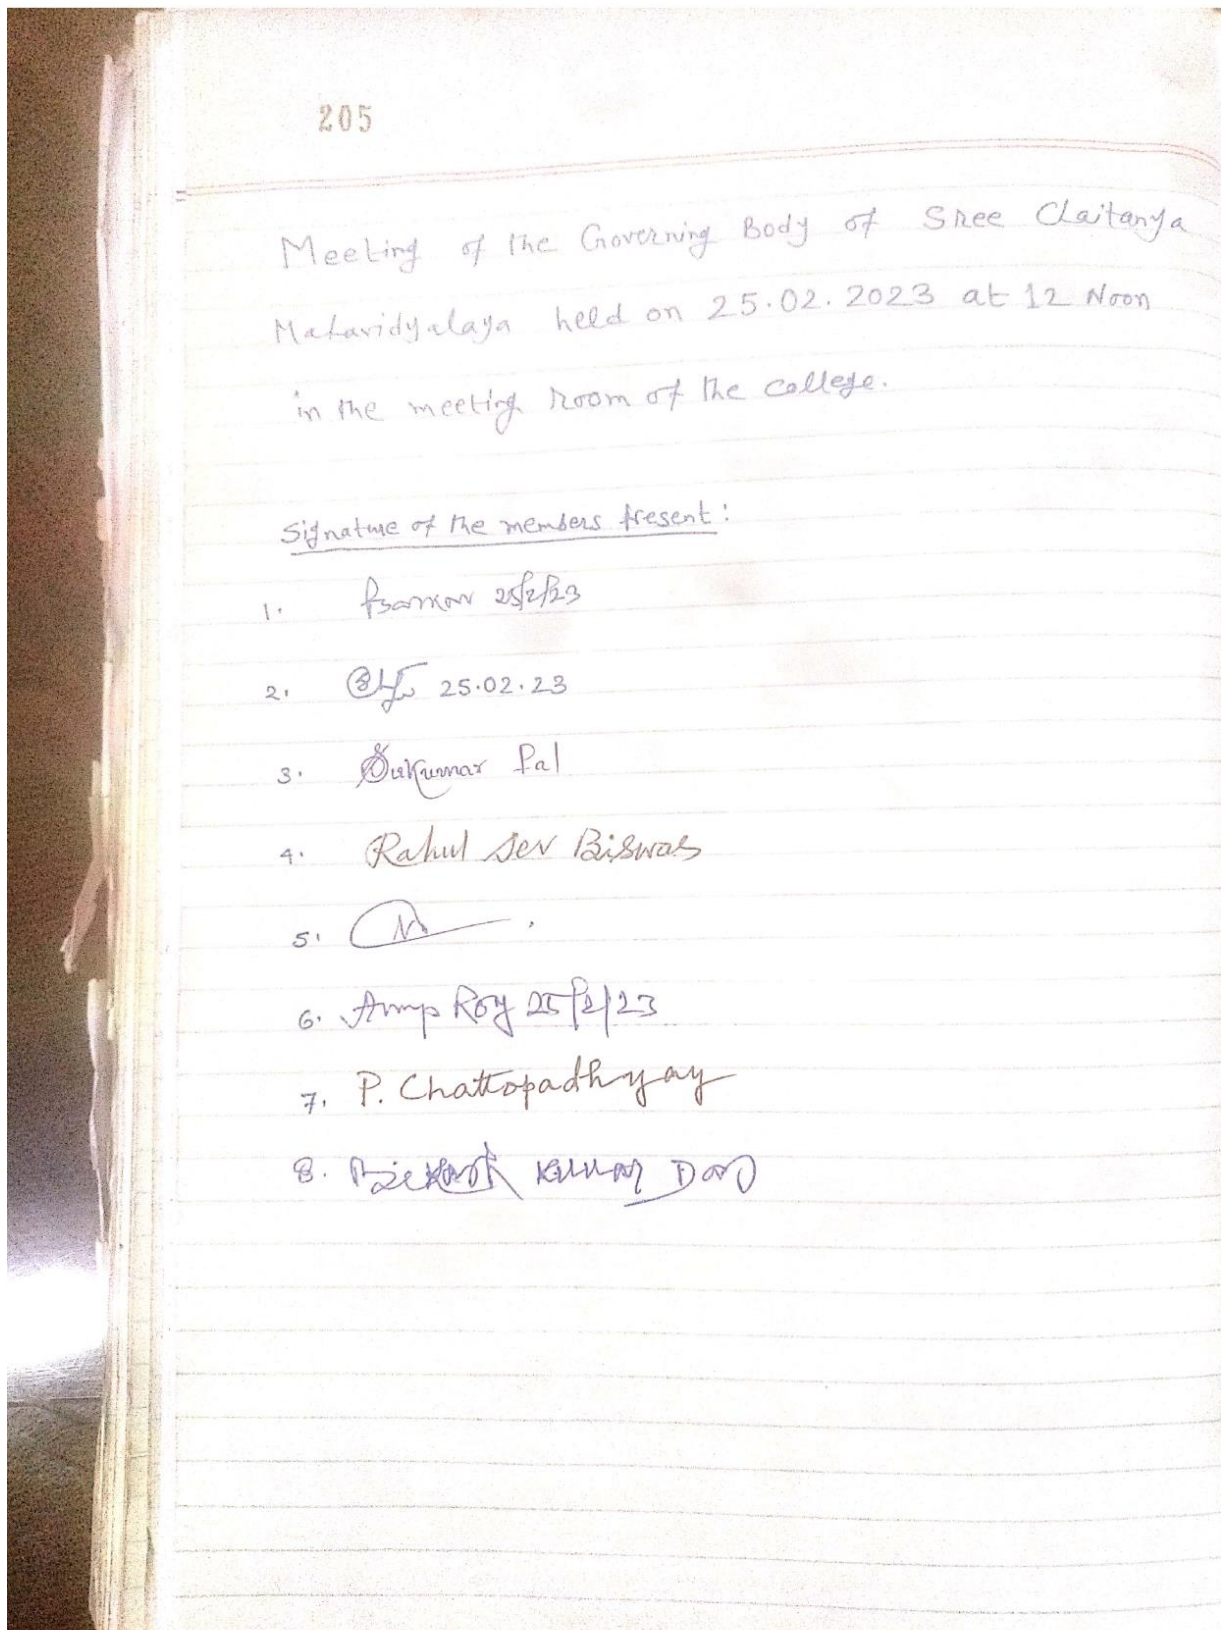 205
Meeting of the Governing Body of Sree Chaitanya
Mahavidyalaya held on 25.02.2023 at 12 Noon
in the meeting room of the college.
Signature of the members present:
1. 25/2/23
2. 25.02.23
3. Sukumar Pal
4. Rahul Dev Biswas
5.
6. Roy 25/2/23
7. P. Chattopadhyay
8. Kumar Das